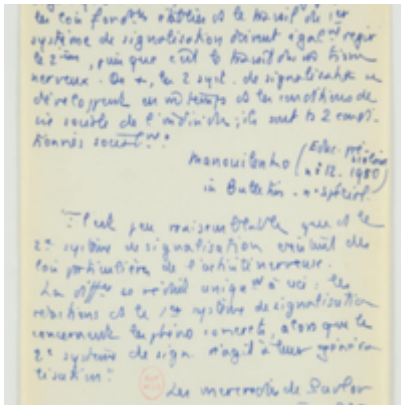 les lois fond. établies et le travail du 1er
système de signalisation doivent égalt régir
le 2ème, puisque c'est le travail du m tissu
nerveux. De +, les 2 syst. de signalisation se
développent en m temps et les conditions de
vie sociale de l'individu ; ils sont ts 2 condi-
tionnés socialt."
Manouilenko (Educ. pré
n° 12. 1950)
in Bulletin - n° spécial.
Il est peu vraisemblable que et le
2e système de signalisation existent des
lois particulières de l'activité nerveuse.
La diffce se réduit uniqt à ceci : les
relations et le 1er système de signalisation
concernent les phéno concrets, alors que le
2e système de sign. réagit à leur générali-
sation."
Les mercredis de Pavlov